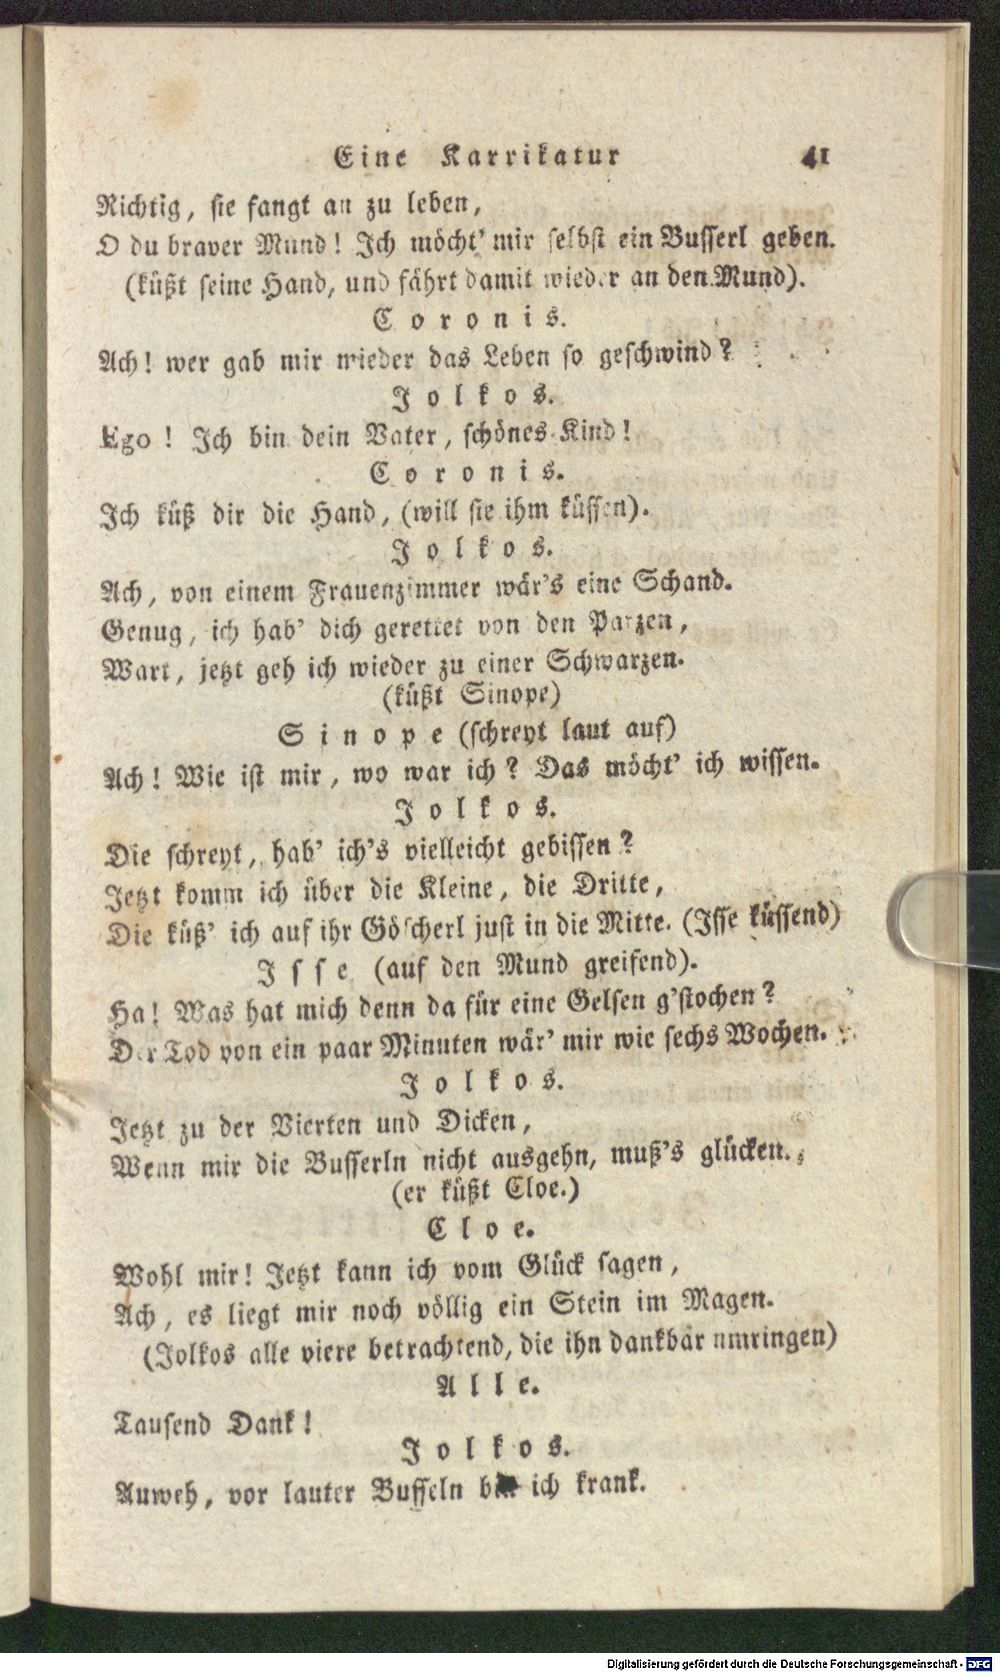 Eine Karrikatur 41
Richtig, sie fangt an zu leben,
O du braver Mund! Ich möcht' mir selbst ein Busserl geben.
(küßt seine Hand, und fährt damit wieder an den Mund).
Coronis.
Ach! wer gab mir wieder das Leben so geschwind?
Jolkos.
Ego! Ich bin dein Vater, schönes Kind!
Coronis.
Ich küß dir die Hand, (will sie ihm küssen).
Jolkos.
Ach, von einem Frauenzimmer wär's eine Schand.
Genug, ich hab' dich gerettet von den Parzen,
Wart, jetzt geh ich wieder zu einer Schwarzen.
(küßt Sinope)
Sinope (schreyt laut auf)
Ach! Wie ist mir, wo war ich? Das möcht' ich wissen.
Jolkos.
Die schreyt, hab' ich's vielleicht gebissen?
Jetzt komm ich über die Kleine, die Dritte,
Die küß' ich auf ihr Göscherl just in die Mitte. (Isse küssend)
Isse (auf den Mund greifend).
Ha! Was hat mich denn da für eine Gelsen g'stochen?
Der Tod von ein paar Minuten wär' mir wie sechs Wochen.
Jolkos.
Jetzt zu der Vierten und Dicken,
Wenn mir die Busserln nicht ausgehn, muß's glücken.
(er küßt Cloe.)
Cloe.
Wohl mir! Jetzt kann ich vom Glück sagen,
Ach, es liegt mir noch völlig ein Stein im Magen.
(Jolkos alle viere betrachtend, die ihn dankbar umringen)
Alle.
Tausend Dank!
Jolkos.
Auweh, vor lauter Busseln bin ich krank.
Digitalisierung gefördert durch die Deutsche Forschungsgemeinschaft - DFG